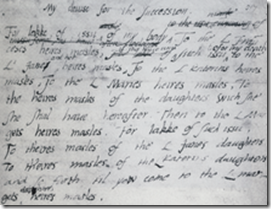 My devise for the Succession.
For lakke of issu of my body To the L
heires masles, of such issu, to the
L Janes heires masles, To the L Katerins heires
masles, To the L Maries heires masles, To
the heires masles of the daughters wich she
she shal have hereafter. Then to the L Mar
gets heires masles. For lakke of such issu,
To th'eires masles of the L Janes daughters
To th'eires masles of the L Katerins daughters
and so forth til you come to the L Mar
gets daughters heires masles.